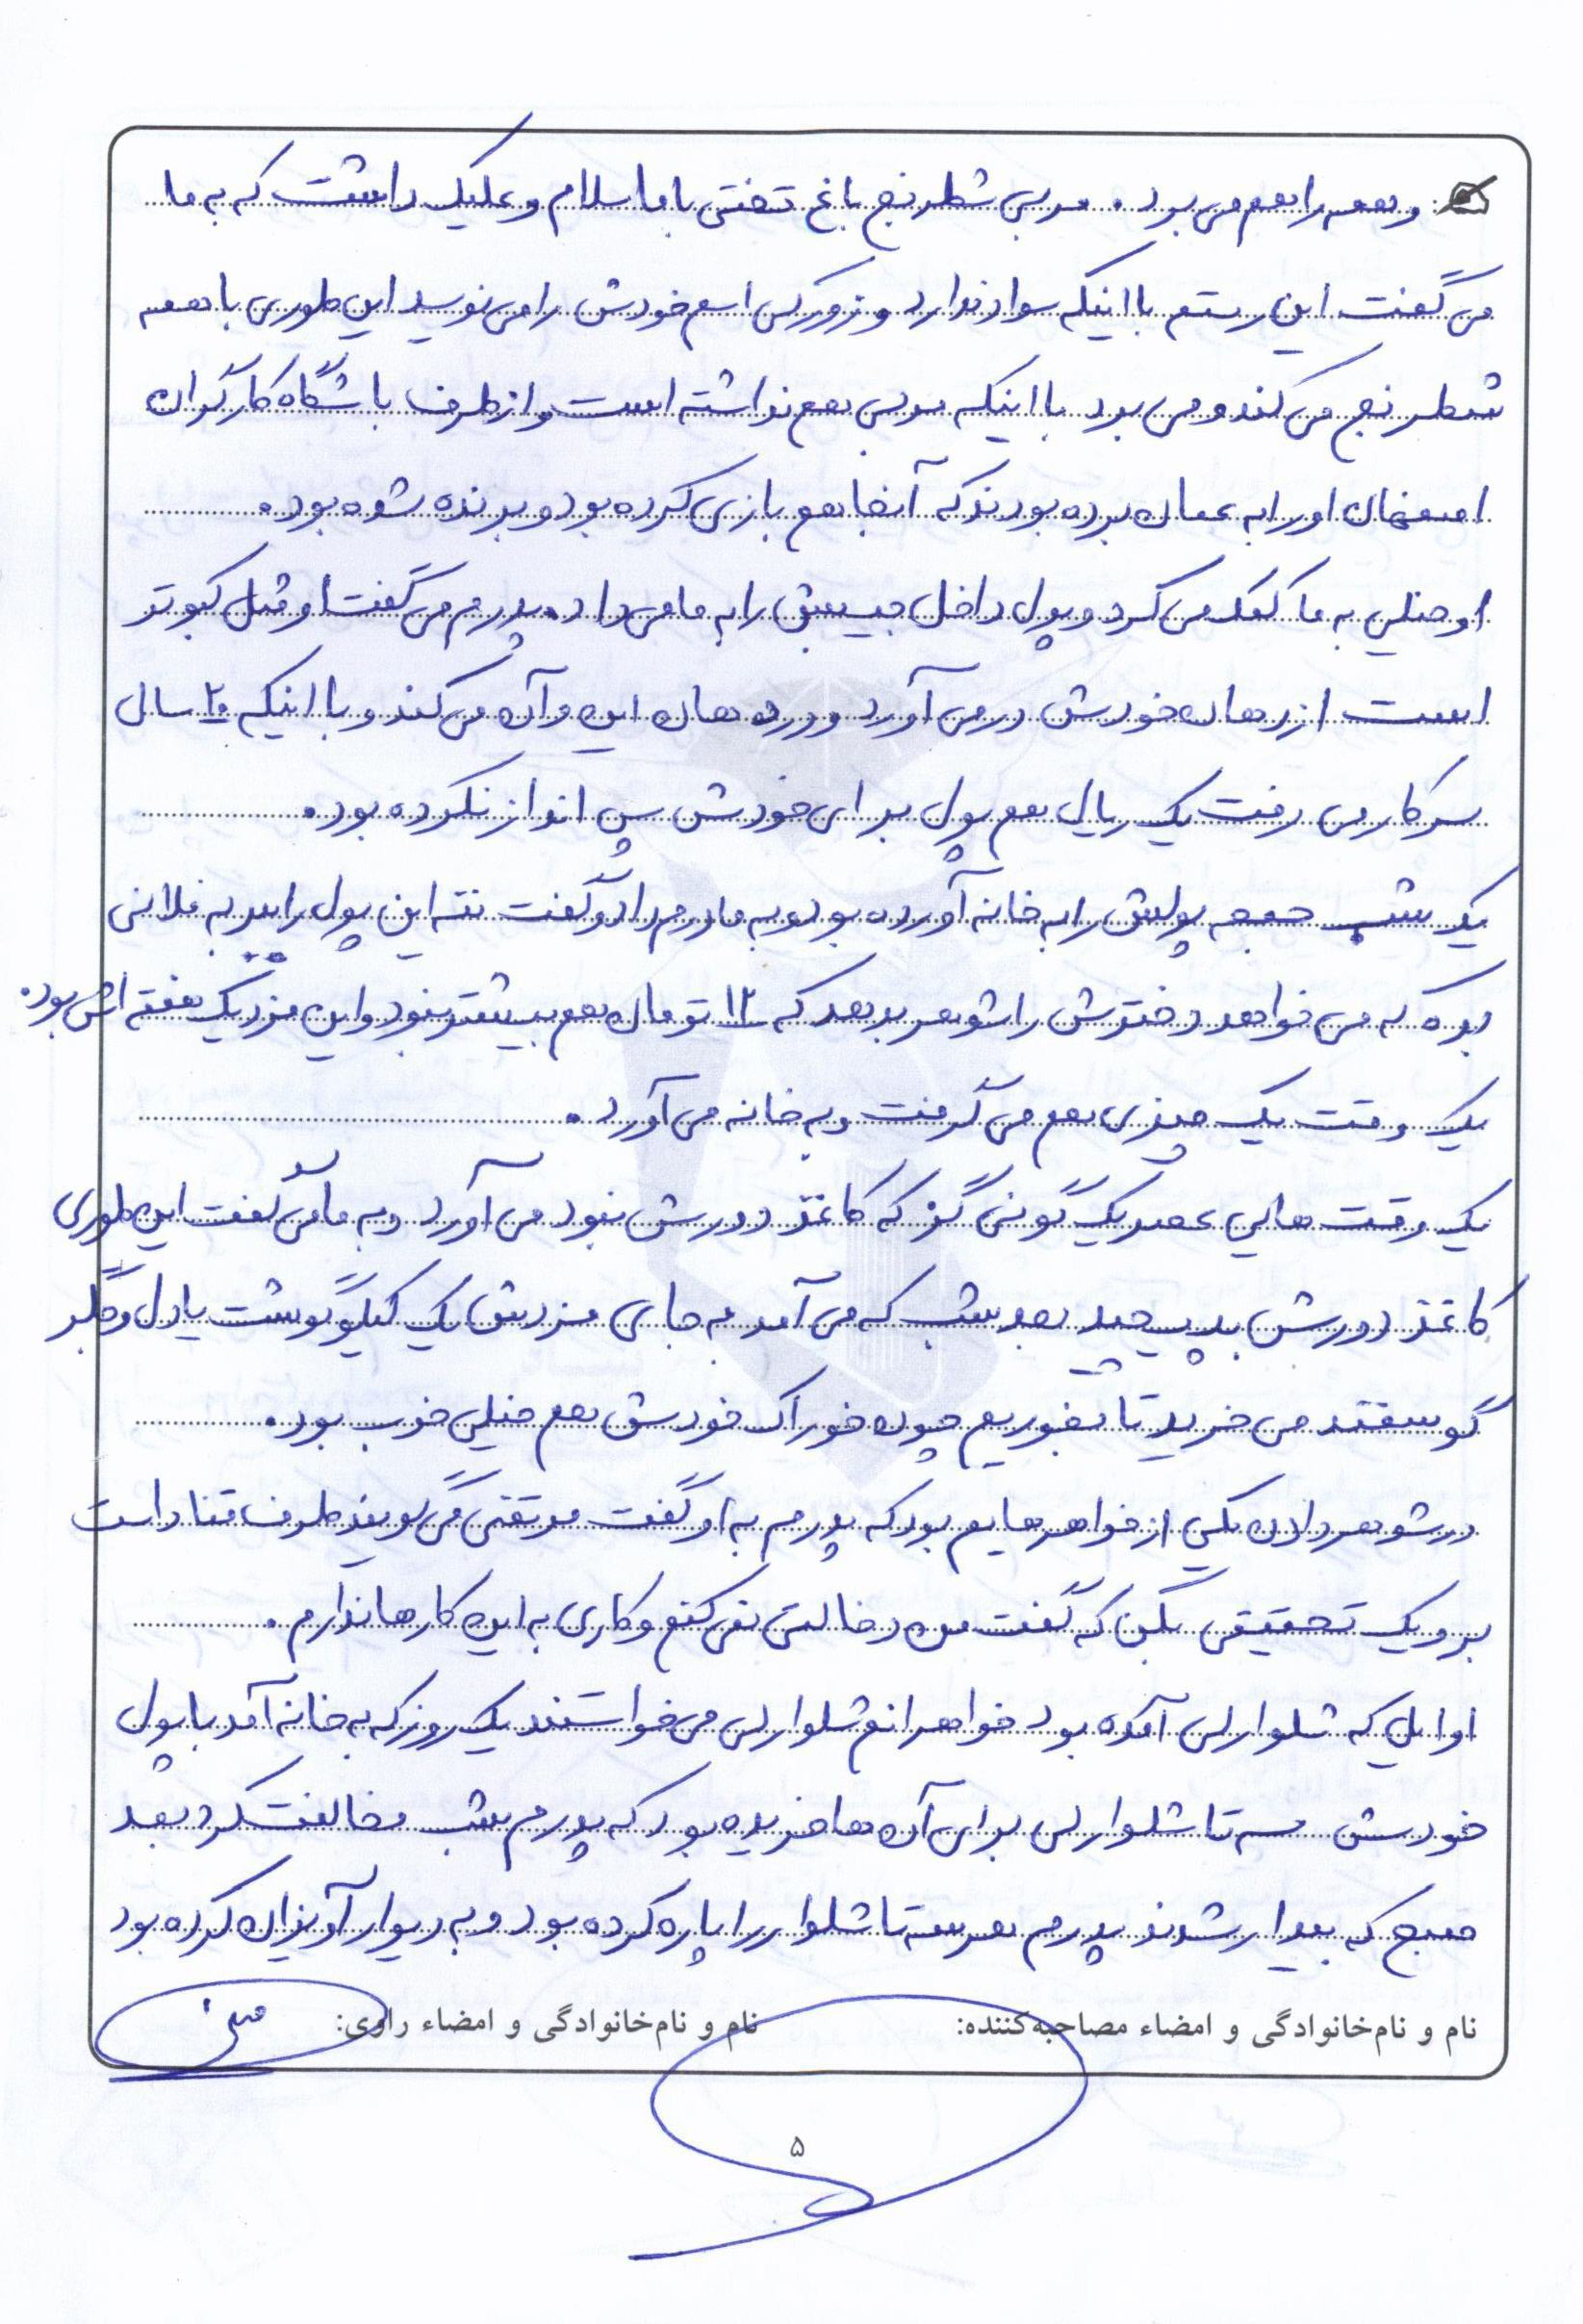 و همه را هم می برد. مربی شطرنج باغ تختی با ما سلام و علیک داشت که به ما
می گفت این رستم با اینکه سواد ندارد و زورکی اسم خودش را می نویسد این طوری با همه
شطرنج می کند و می برد با اینکه مربی هم نداشته است و از طرف باشگاه کارگران
اصفهان او را به عمان برده بودند که آنجا هم بازی کرده بود و برنده شده بود.
او خیلی به ما کمک می کرد و پول داخل جیبش را به ما می داد. پدرم می گفت او مثل کبوتر
است از دهان خودش در می آورد و در دهان این و آن می کند و با اینکه ۲۰ سال
سر کار می رفت یک ریال هم پول برای خودش پس انداز نکرده بود.
یک شب جمعه پولش را به خانه آورده بود و به مادرم داد و گفت ننه این پول را ببر به فلانی
بده که می خواهد دخترش را شوهر بدهد که ۱۲ تومان هم بیشتر نبود و این مزد یک هفته اش بود.
یک وقت یک چیزی هم می گرفت و به خانه می آورد.
یک وقت هایی عصر یک گونی گز که کاغذ دورش نبود می آورد و به ما می گفت این طوری
کاغذ دورش بپیچید بعد شب که می آمد به جای مزدش یک کیلو گوشت یا دل و جگر
گوسفند می خرید تا بخوریم چون خوراک خودش هم خیلی خوب بود.
در شوهر دادن یکی از خواهرهایم بود که پدرم به او گفت مرتضی می گویند طرف قناد است
برو یک تحقیقی بکن که گفت من دخالتی نمی کنم و کاری به این کارها ندارم.
اوایلی که شلوار لی آمده بود خواهرانم شلوار لی می خواستند یک روز که به خانه آمد با پول
خودش سه تا شلوار لی برای آن ها خریده بود که پدرم شب مخالفت کرد بعد
صبح که بیدار شدند پدرم هر سه تا شلوار را پاره کرده بود و به دیوار آویزان کرده بود
نام و نام‌خانوادگی و امضاء مصاحبه‌کننده: نام و نام‌خانوادگی و امضاء راوی:
۵